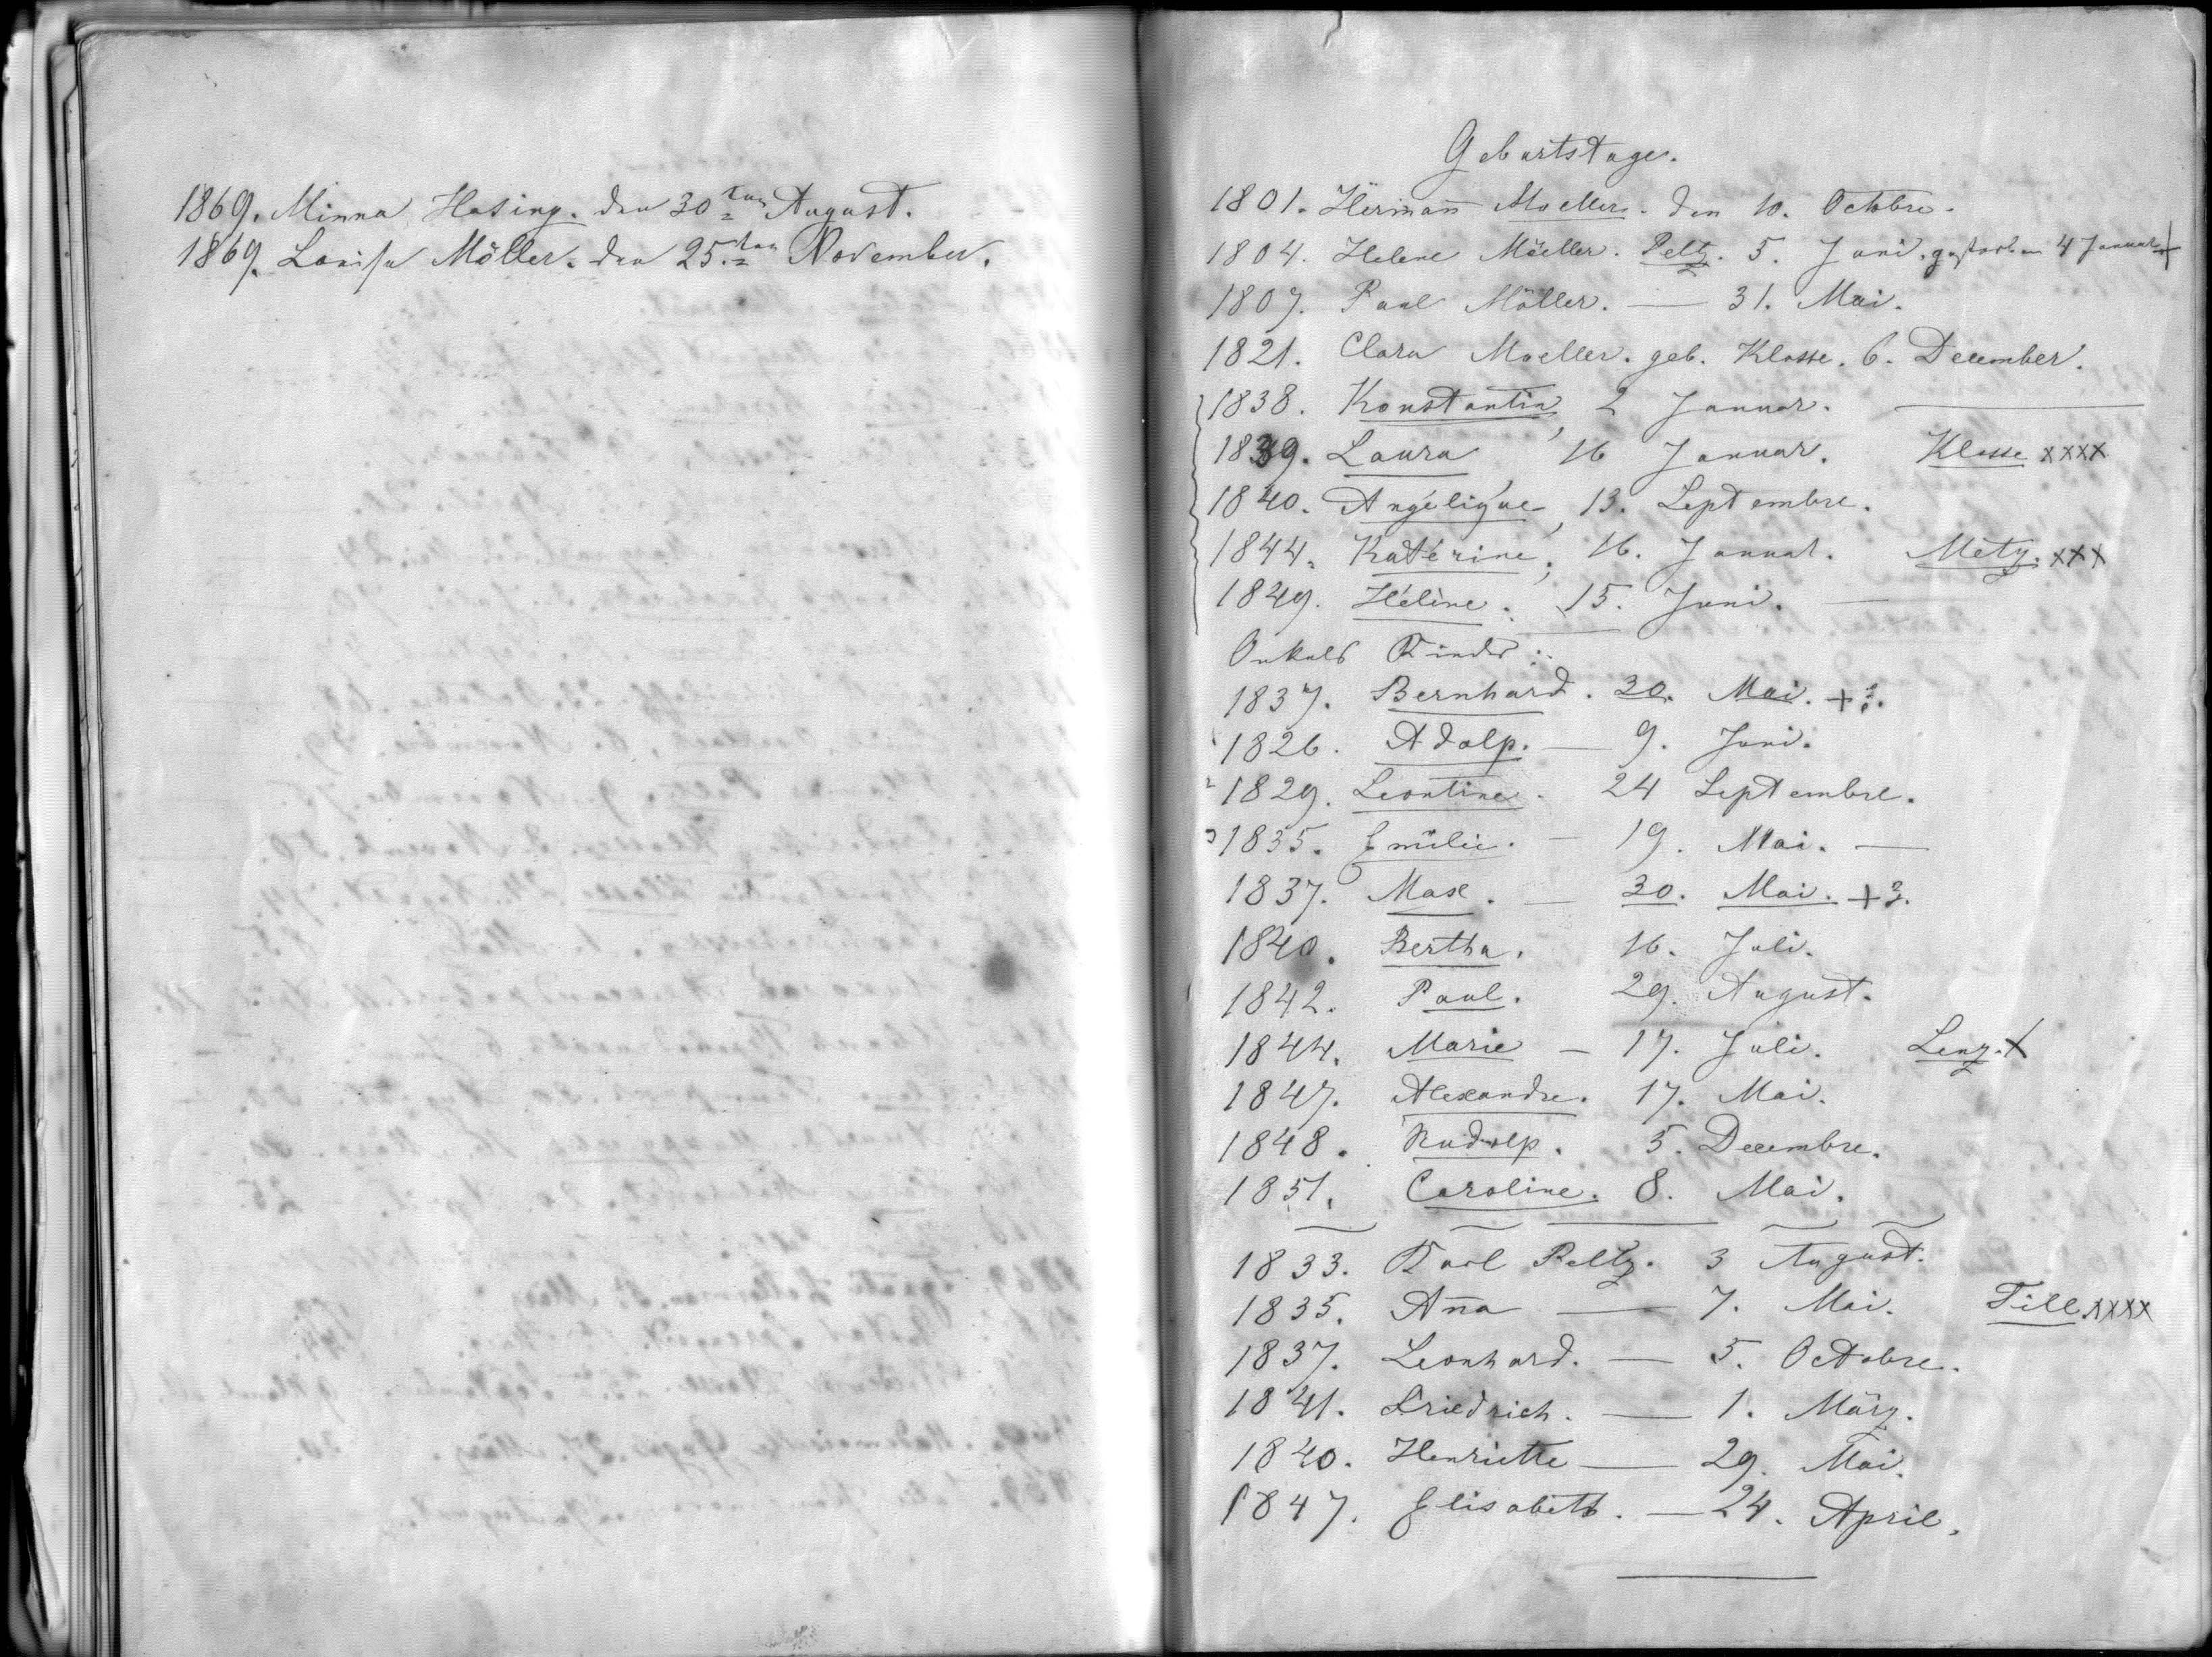 1869. Minna Hasing. den 30ten August.
1869. Louise Möller. den 25.ten November.
Geburtstage.
1801. Hermann Moeller. den 10. Octobre.
1804. Helene Möeller. Peltz. 5. Juni. gestorben 4 Januar +
1807. Paul Möller. — 31. Mai.
1821. Clara Moeller. geb. Klasse. 6. December.
1838. Konstantin, 2 Januar. —
1839. Laura, 16 Januar. Klasse xxxx
1840. Angélique, 13. Septembre.
1844. Katérine, 16. Januar. Metz. xxx
1849. Héléne. 15. Juni. —
Onkels Kinder:
1837. Bernhard. 30. Mai. + ?.
1826. Adolp. — 9. Juni.
2 1829. Leontine. 24 Septembre.
3 1835. Emilie. — 19. Mai. —
1837. Max. — 30. Mai. + ?.
1840. Bertha. 16. Juli.
1842. Paul. 29. August.
1844. Marie — 17. Juli. Lenz. x
1847. Alexandre. 17. Mai.
1848. Rudolp. 5. Decembre.
1851. Caroline. 8. Mai.
1833. Karl Peltz. 3 August.
1835. Anna — 7. Mai. Till xxxx
1837. Leonhard. — 5. Octobre.
1841. Friedrich. — 1. März.
1840. Henriette — 29. Mai.
1847. Elisabeth. — 24. April.